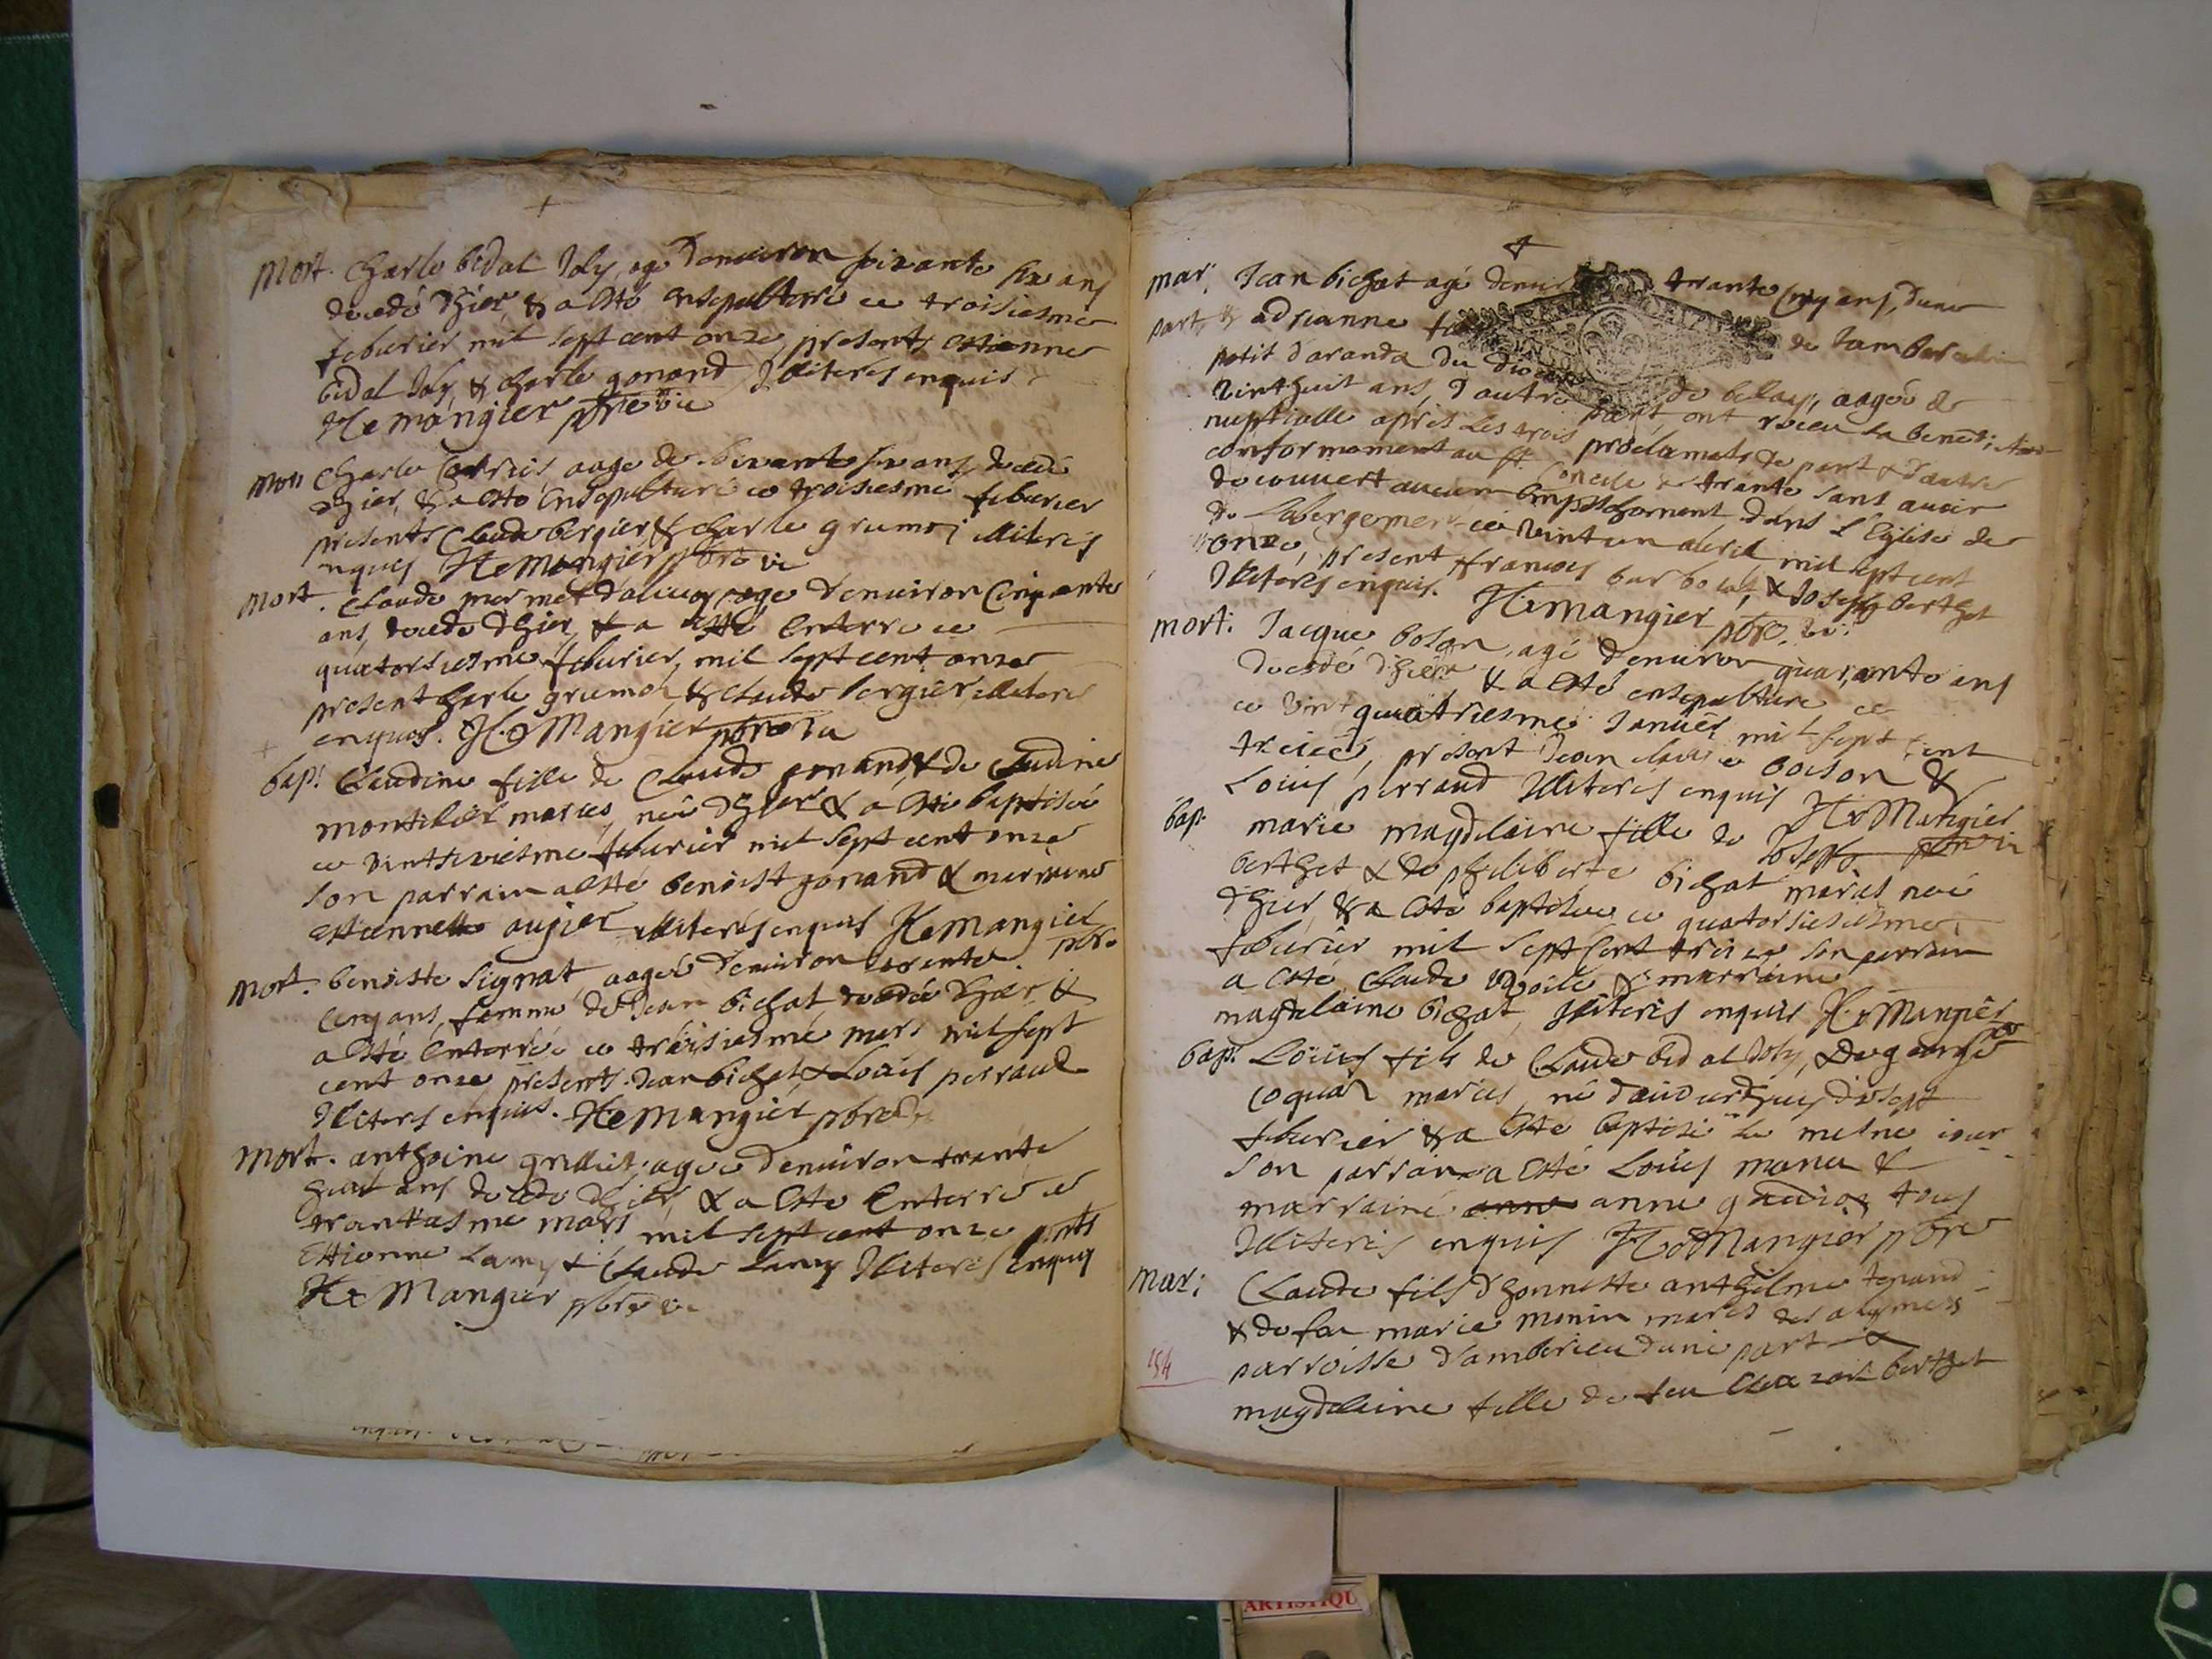 mort. Charle bidal Joly, agé denuiron soixante six ans
decedé dhier, & a esté ensepulturé ce troisiesme
feburier mil sept cent onze, presents estienne
bidal Joly, & charle gonand Illiterés enquis
He mangier pbre vic
mort Charle aage de soixante six ans, decedé
dhier, & a esté ensepulturé ce troisiesme feburier
presents Claude bergier & Charle grumod illiterés
nquis He Mangier pbre vic
mort. Claude mermet age denuiron Cinquante
ans, decedé dhier, & a esté enterré ce
quatorsiesme feburier, mil sept cent onze
present Charle grumod, & Claude bergier, illiterés
enquis. He Mangier pbre vic
bap. Claudine fille de Claude gonand, & de Claudine
montilier mariés, née dhier & a esté baptisée
ce vint feburier mil sept cent onze
son parrain a esté benoist gonand & marraine
estiennette augier illiterés enquis He Mangier
pbre
mort. benoiste Signat aagée denuiron trente
Cinq ans, femme de Jean bichat, decedée dhier, &
a esté enterrée ce troisiesme mars mil sept
cent onze presents Jean bichat & Louis perraud
Illiters enquis. He Mangier pbre vic
mort. anthoine agée denuiron trente
huit ans decedé dhier, & a esté enterré ce
trantiesme mars mil sept cent onze pnts
Estienne Lamy & Claude Lamy Illiterés enquis
He Mangier pbre vic
mar. Jean bichat agé denuir trante Cinq ans, dune
part, & adrianne de
petit daranda du dioces de belay, aagée de
vinthuit ans, dautre part, ont receu la benediction
nuptialle apres les trois proclamats de part & dautre
conformement au st. Concile de trante sans auoir
decouuert aucun empeschement dans l'Eglise de
Labergement ce vint un auril mil sept cent
onze, present francois & Joseph berthet
Illiterés enquis. He mangier pbre. vic.
mort. Jacque boson, agé denuiron quarante ans
decedé dhier & a esté ensepulture ce
ce vint quatriesme Januier mil sept cent
treice, present Jean claude boison &
Louis perraud Illiterés enquis He Mangier
pbre vic
bap. marie magdelaine fille de Joseph
berthet & de pheliberte bichat mariés née
dhier, & a esté baptisée ce quatorsiesiesme
feburier mil sept cent treice son parrain
a esté Claude & marraine
magdelaine bichat, Illiterés enquis He Mangier
pbre
bap. Loüis fils de Claude bidal Joly, & de
coquas mariés, né daujourdhuy disept
feburier & a esté baptisé le mesme iour
son parrain a esté Loüis & 
marraine anne tous
Illiterés enquis He Mangier pbre
mar: Claude fils dhonneste anthelme tenand
& de feu marie monin mariés des alymes
parroisse d'amberieu dune part &
154
magdelaine fille de feu berthet